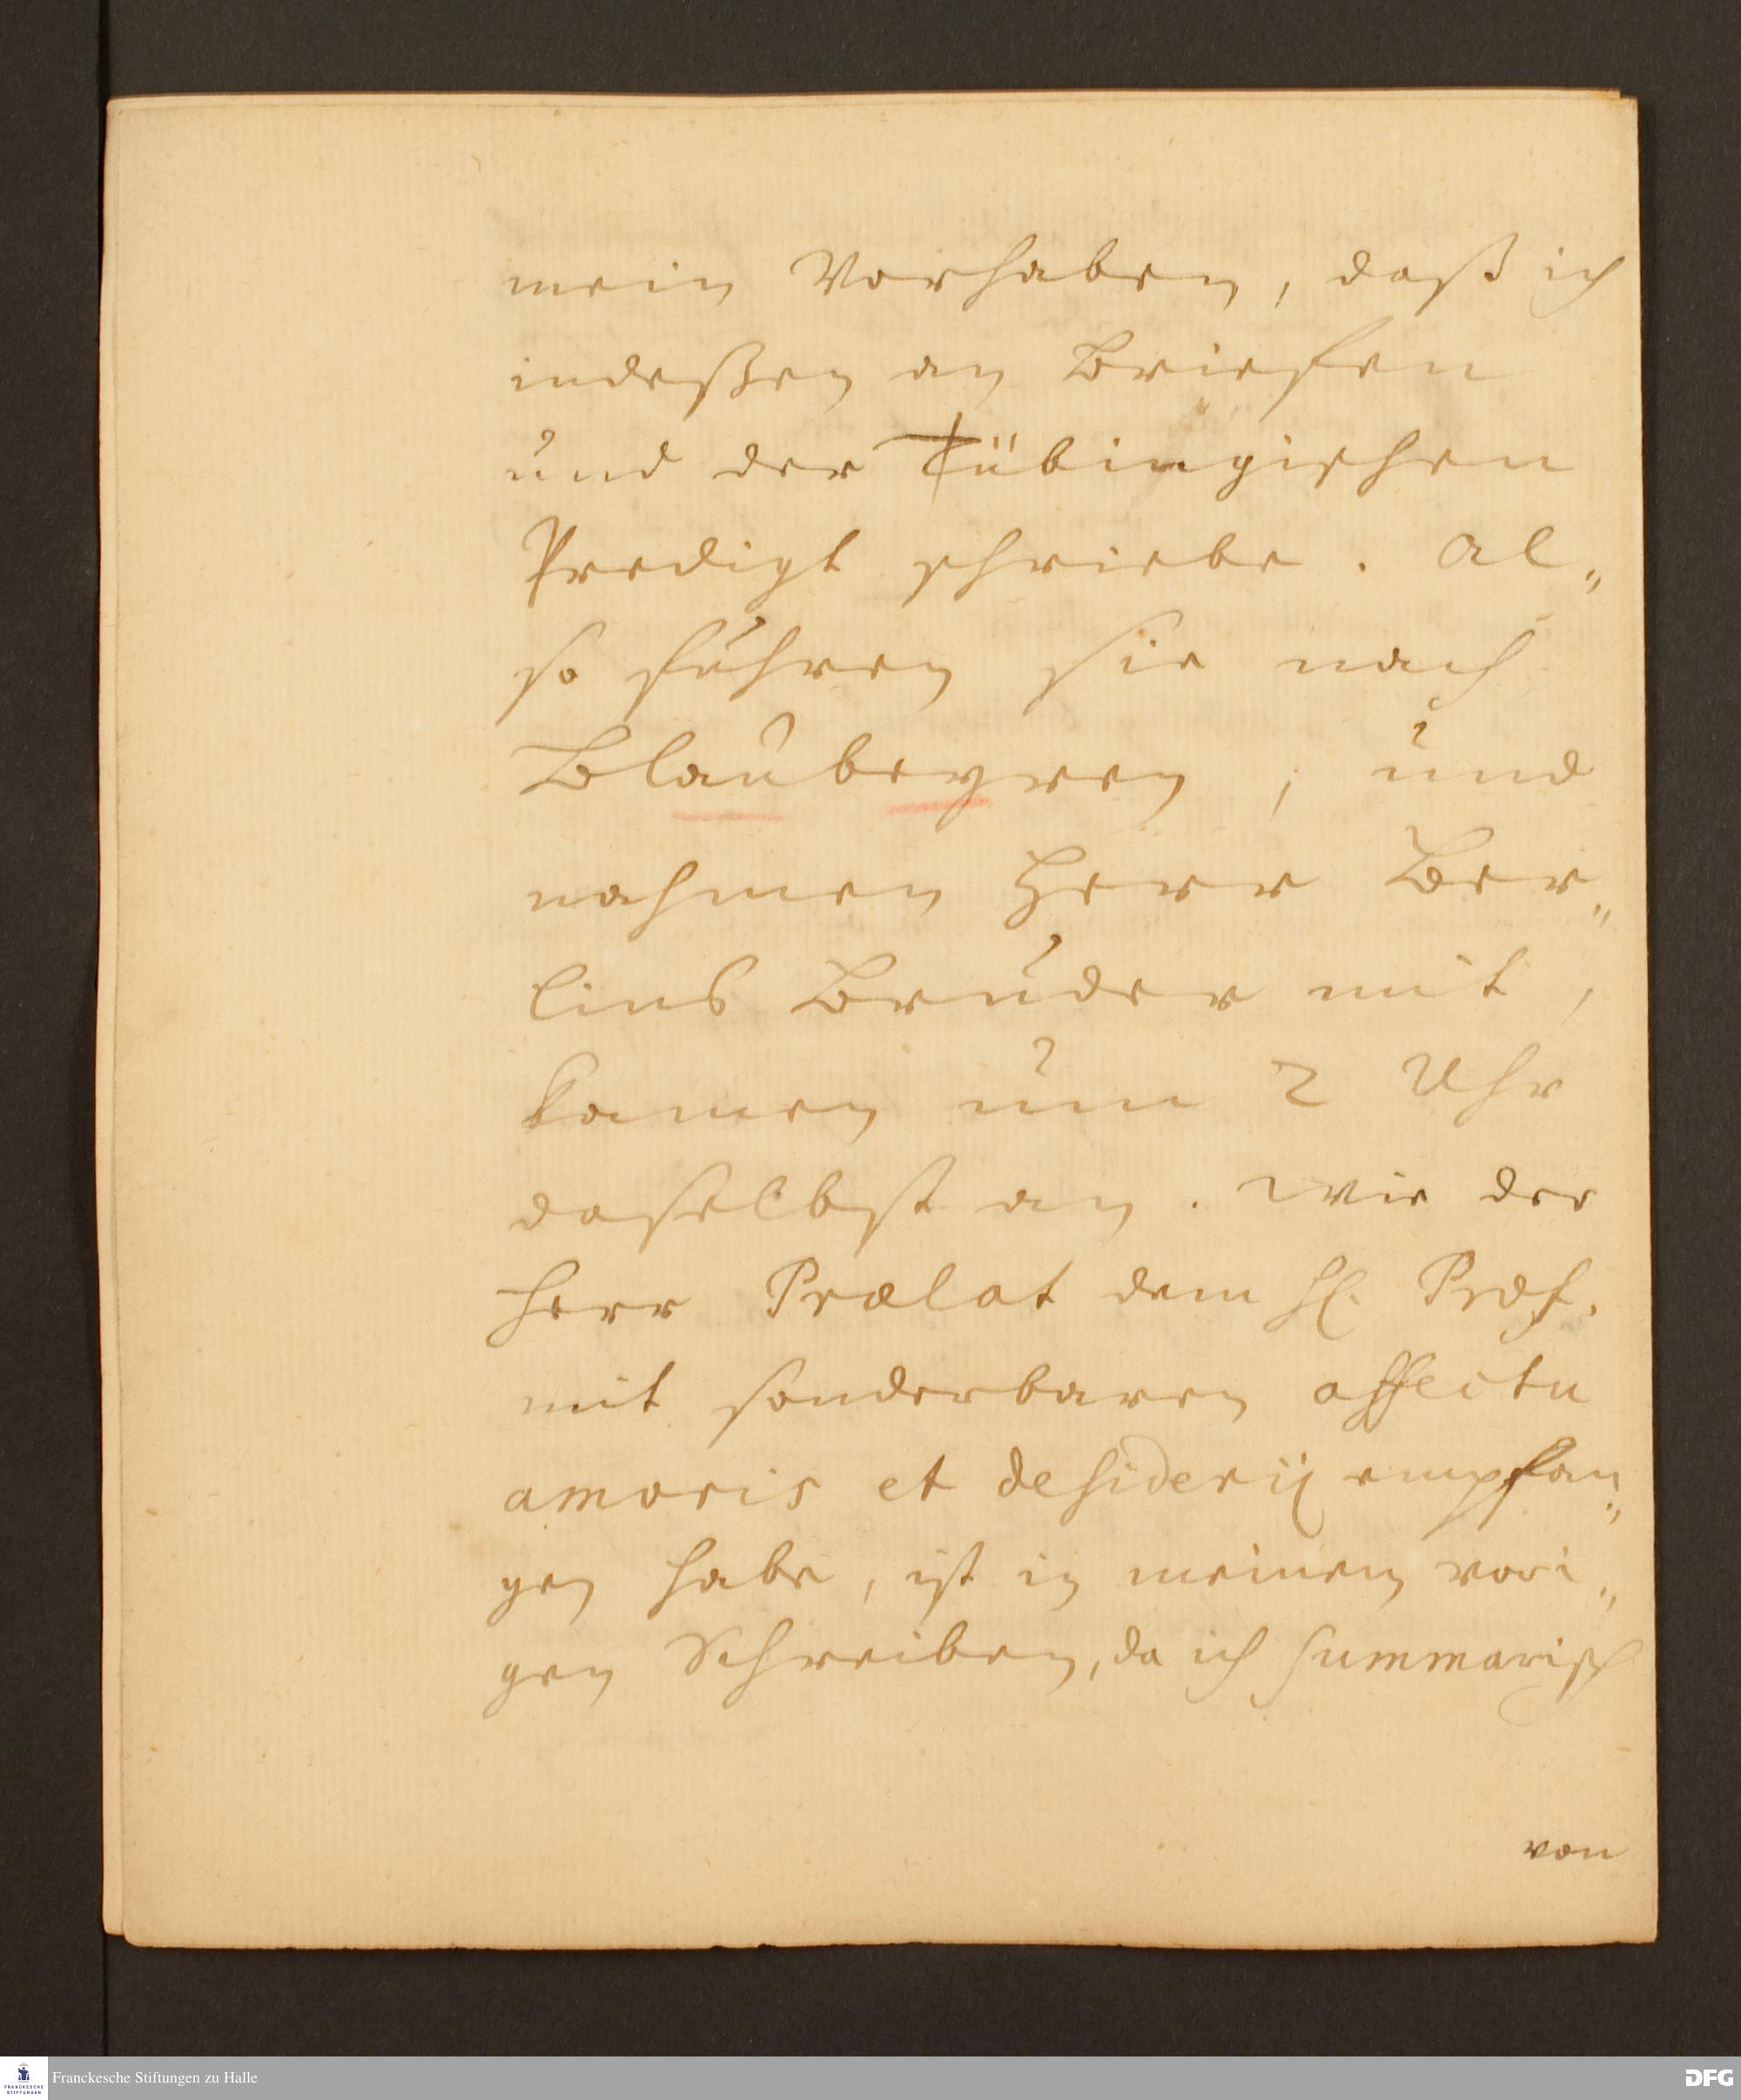 mein Vorhaben, daß ich
indeßen an Briefen
und der Tübingischen
Predigt schriebe. Al„
so fuhren sie nach
Blaubeyren, und
nahmen Herr Ber„
lins Bruder mit,
kamen um 2 Uhr
daselbst an. Wie der
Herr Prælat dem H. Prof.
mit sonderbaren affectu
amoris et desiderij empfan„
gen habe, ist in meinen vori„
gen Schreiben, da ich summarisch
von
Franckesche Stiftungen zu Halle
FRANCKESCHE
STIFTUNGEN
DFG